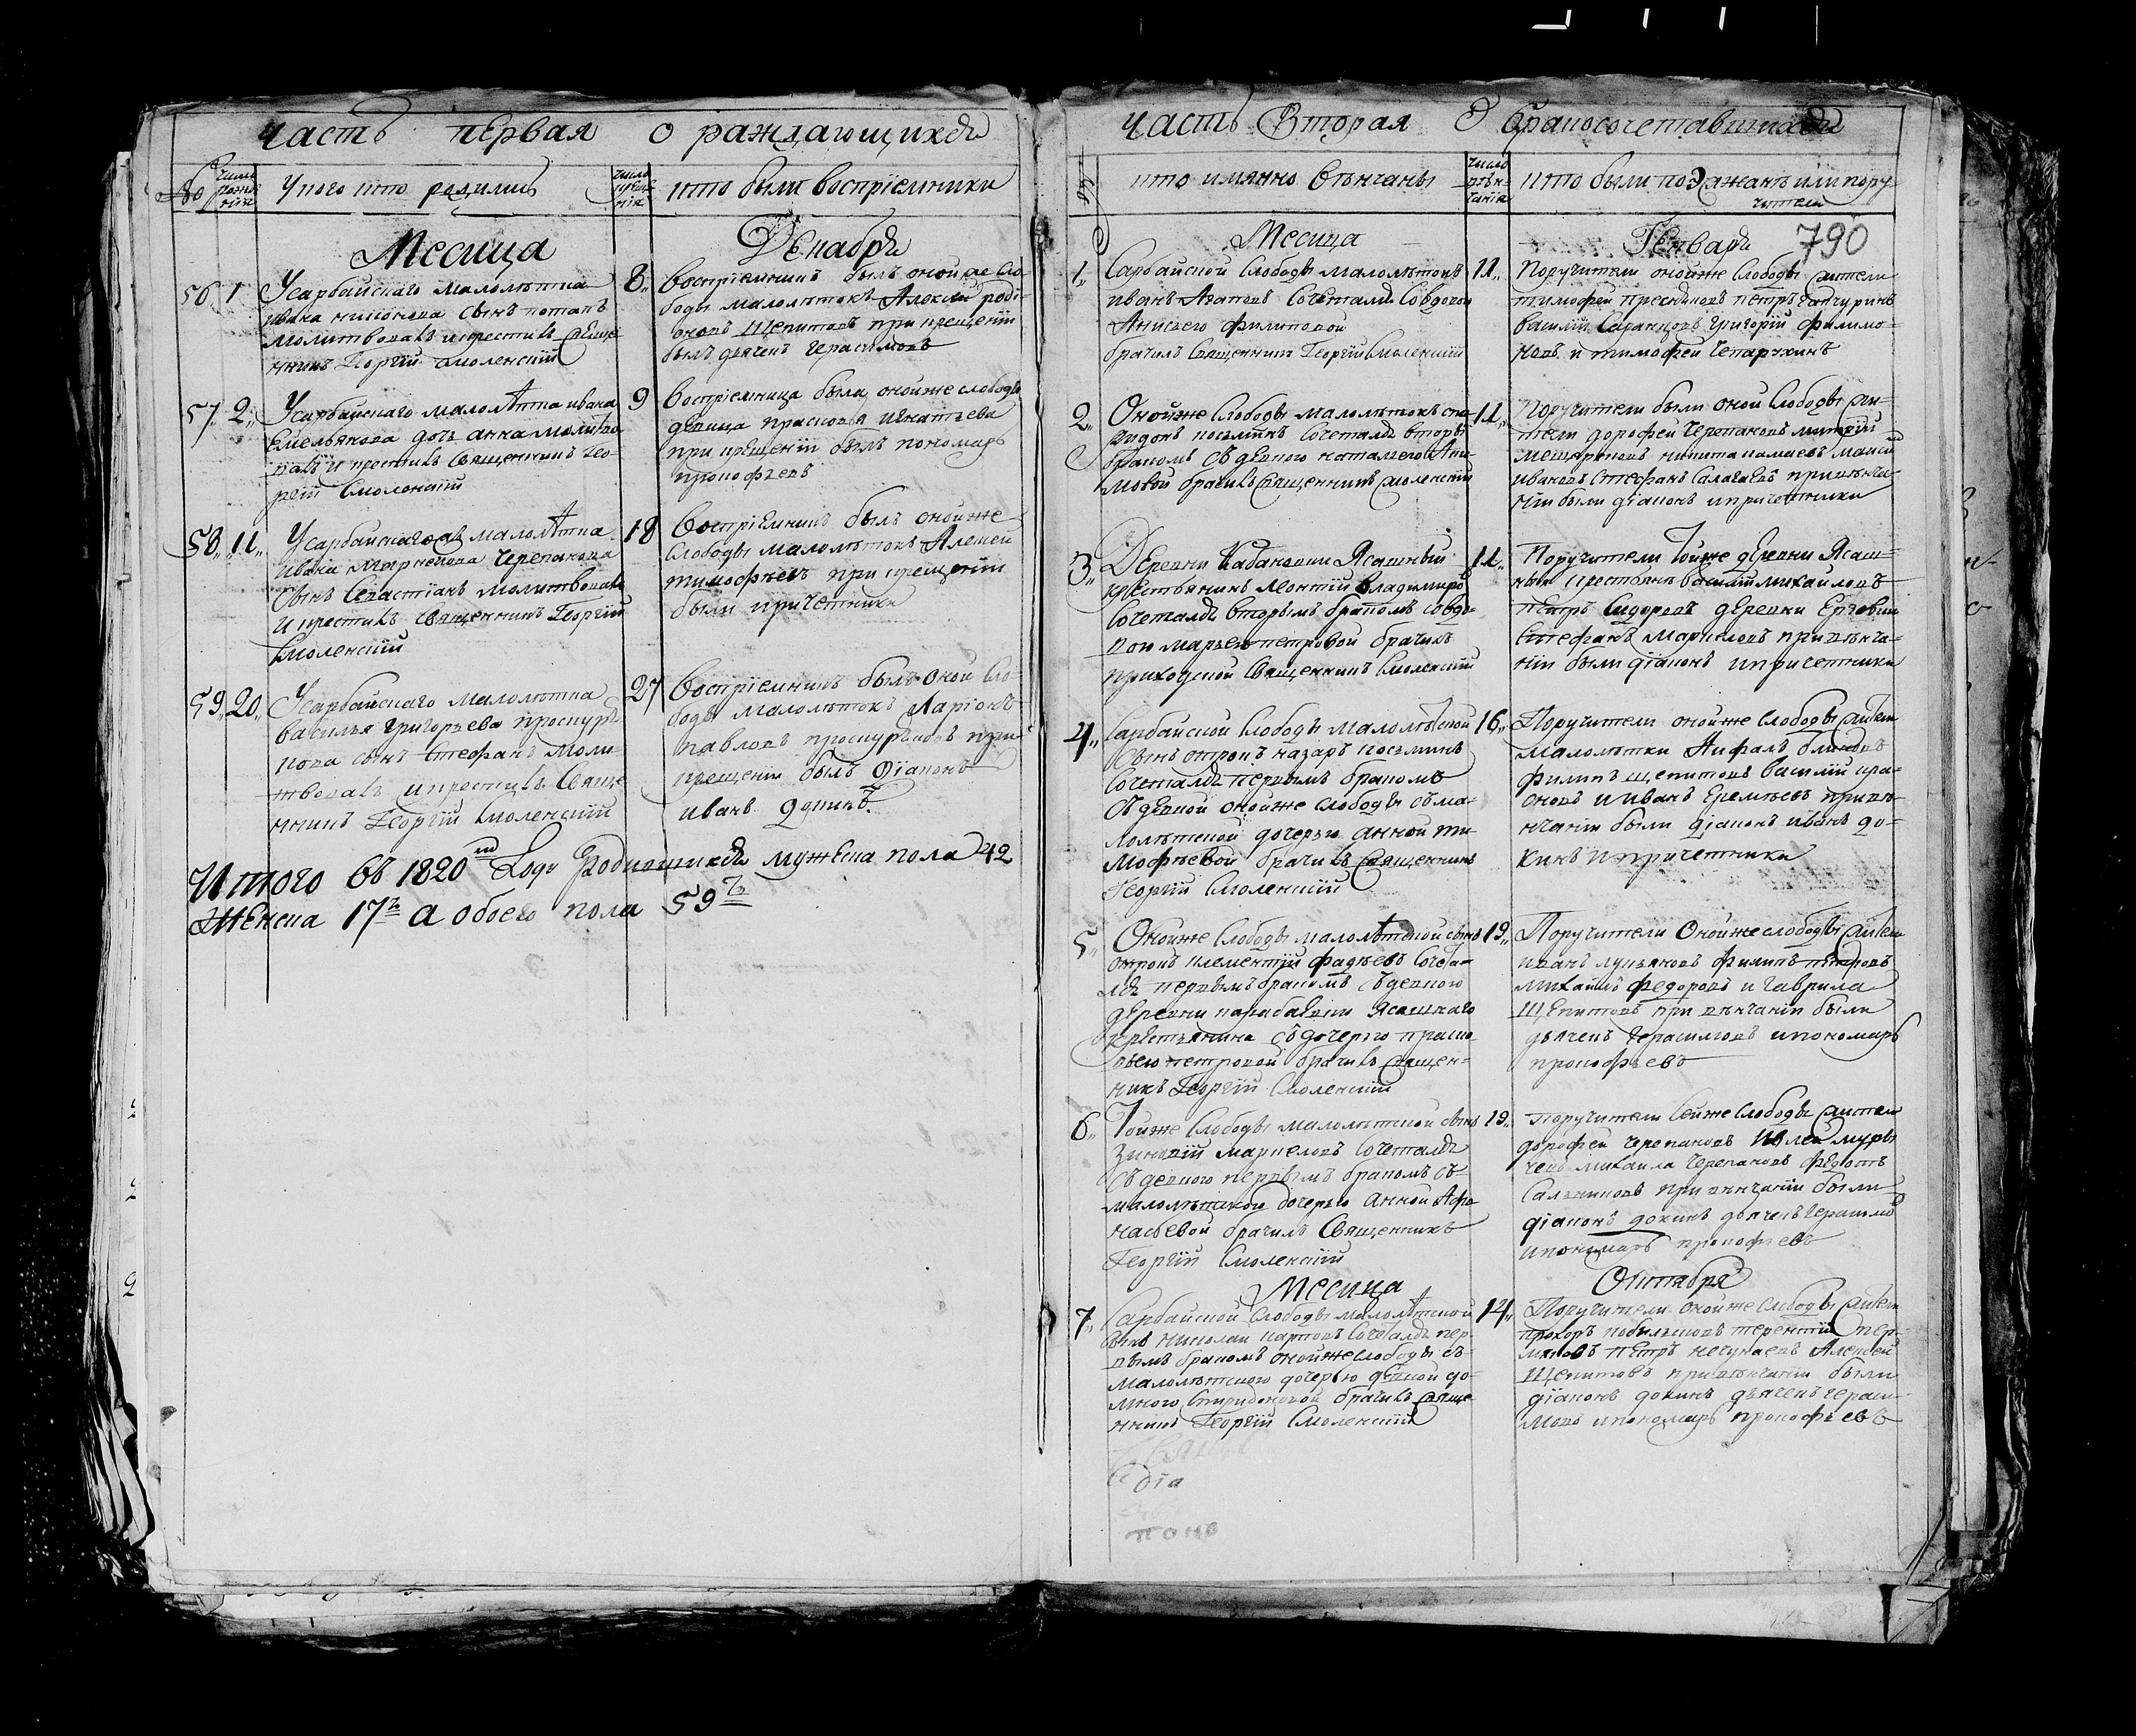 часть первая о раждающихся
№ число рождения У кого кто родились число крещения кто были восприемники
Месяца Декабря
56. 1 У сарбайскаго малолѣтка
ивана никонова сынъ потапъ
молитвовалъ и крестилъ свяще
нникъ Георгiй Смоленскiй
8. восприемникъ былъ оной же сло
боды малолѣтокъ Алексей родi
оновъ Щепитовъ при крещенiи
былъ дьячекъ Герасимовъ
57. 2. У сарбайскаго малолѣтка ивана
Емельянова дочь анна молитво
валъ и крестилъ Священникъ Гео-
ргiй Смоленскiй
9 восприемница была оной же слободы
девица прасковья игнатьева
при крещенiи былъ пономарь
прокофьевъ
58. 11. У сарбайскаго малолѣтка
ивана Маркелова Черепанова
Сынъ Севастiанъ молитвовалъ
и крестилъ Священникъ Георгiй
Смоленскiй
18 восприемникъ былъ оной же
слободы малолѣтокъ Алексей
тимофѣевъ при крещенiи
были причетники
59. 20. У сарбайскаго малолѣтка
василья григорьева проскуря
кова сынъ стефанъ моли
твовалъ и крестилъ Свяще
нникъ Георгiй Смоленскiй
27 восприемникъ былъ оной сло
боды малолѣтокъ Ларiонъ
павловъ проскуряковъ при
крещенiи былъ дiаконъ
иванъ
Итого въ 1820м Году Родившихся мужеска пола 42
Женска 17ть а обоего пола 59ть
часть Вторая о бракосочетавшихся
№ кто имянно Вѣнчаны число вѣнчанiя кто были поэзжанѣ или пору-
чители
Месяца Генваря 790
1. Сарбайской Слободы малолѣтокъ
иванъ Агаповъ Сочетался Совдовою
Анисьею филиповой
брачилъ Священникъ Георгiй Смоленскiй
11. Поручители оной же Слободы жители
тимофей петръ
василiй Саранцовъ григорiй филимо-
новъ и тимофей
2. Оной же Слободы малолѣтокъ спи-
ридонъ косьминъ Сочетался вторы
бракомъ Съ девкою натальею
брачилъ священникъ Смоленскiй
11. Поручители были оной Слободы жи-
тели дорофей Черепановъ митрiй
мещеряковъ никита Макси
ивановъ Стефанъ при вѣнча-
нiи были дiаконъ и причетники
3. Деревни Кабановки Ясашный
крестьянинъ леонтiй Владимиро
Сочетался вторымъ бракомъ Со вдо-
вою марьею петровой брачилъ
приходской Священникъ Смоленскiй
11. Поручители Той же деревни Ясаш-
ный крестьянъ василiй михайловъ
петръ Сидоровъ деревни
Стефанъ Маркеловъ при вѣнча-
нiи были дiаконъ и причетники
4. Сарбайской Слободы малолѣтской
Сынъ отрокъ назаръ косьминъ
Сочетался первымъ бракомъ
Съ девкой оной же слободы съ ма-
лолѣтской дочерью анной ти
мофѣевой брачилъ священникъ
Георгiй Смоленскiй
16. Поручители оной же слободы жители
малолѣтки
филипъ щепитовъ василiй кра-
сновъ и иванъ Еремѣевъ при вѣ-
нчанiи были дiаконъ иванъ до-
кинъ и причетники
5. Оной же Слободы малолѣтской сынъ
отрокъ климентiй фадѣевъ Сочета-
лся первымъ бракомъ Съ девкою
деревни Ясашнаго
крестьянина Съ дочерью праско
вьею петровой брачилъ Священ-
никъ Георгiй Смоленскiй
19. Поручители Оной же слободы жители
иванъ лукьяновъ филипъ петровъ
михайлъ федоровъ и гаврила
Щепитовъ при вѣнчанiи были
дьячекъ Герасимовъ и пономарь
прокофьевъ
6. Той же Слободы малолѣтской сынъ
Зиновiй маркеловъ Сочетался
Съ девкою первымъ бракомъ съ
малолѣтскою дочерью анной Афа
насьевой брачилъ Священникъ
Георгiй Смоленскiй
19. Поручители Сей же Слободы жители
дорофей черепановъ
михаила Черепановъ федотъ
Сальниковъ при вѣнчанiи были
дiаконъ докинъ дьячекъ Герасимо
и пономарь прокофьевъ
Месяца Октября
7. Сарбайской Слободы малолѣтской
сынъ николай карповъ Сочетался пер
вымъ бракомъ оной же слободы съ
малолѣтскою дочерью девкой до-
мною Спиридоновой брачилъ свяще
нникъ Георгiй Смоленскiй
14. Поручители оной же слободы жители
прохоръ терентiй
петръ Алексей
Щепитовъ при вѣнчанiи были
дiаконъ докинъ дьячекъ Гераси-
мовъ и пономарь прокофьевъ
дiа
поно